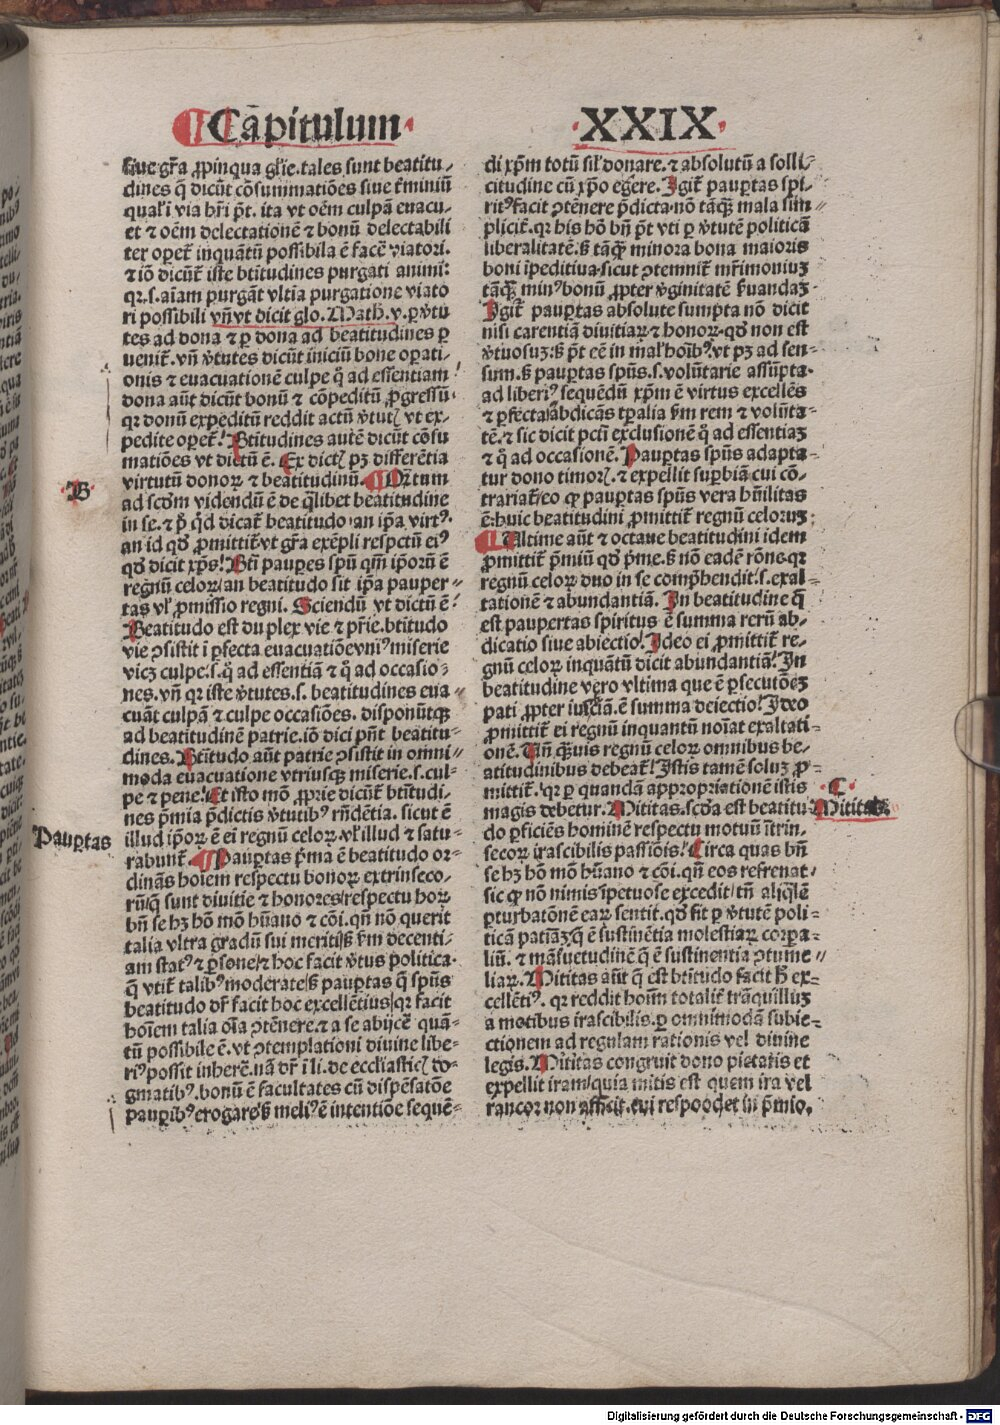 ¶ Cāpitulum
XXIX
siue gr̄a ꝓpinqua gl̄ie. tales sunt beatitu-
dines q̄ dicūt cōsummatiōes siue t̄miniū
qualī i via hr̄i pn̄t. ita vt oēm culpā euacu-
et ⁊ oēm delectationē ⁊ bonū delectabili
ter opet᷑ inquātū possibila ē facē viatori.
⁊ iō dicūt᷑ iste btītudines purgati animi:
qr. s. aīam purgāt vltīa purgatione viato
ri possibili vn̄ vt dicit glo. Math. v. ꝑ v̓tu
tes ad dona ⁊ ꝑ dona ad beatitudines ꝑ
uenit᷑. vn̄ v̓tutes dicūt iniciū bone oꝑati-
onis ⁊ euacuationē culpe q̄ ad essentiam
dona aūt dicūt bonū ⁊ cōpeditū ꝓgressū
qr donū expeditū reddit actū v̓tutꝭ vt ex-
pedite oꝑet᷑. Btītudines autē dicūt cōsu
matiōes vt dictū ē. Ex dictꝭ pꝫ differētia
virtutū donoꝝ ⁊ beatitudinū. ¶ Q̄rtum
B
ad scdm videndū ē de q̄libet beatitudine
in se. ⁊ p̄ qd̓ dicat᷑ beatitudo an ip̄a virtꝰ.
an id qd̓ ꝓmittit᷑ vt gr̄a exēpli respctū eiꝰ
qd̓ dicit xp̄s. Bt̄i pauꝑes spū qm̄ ip̄oꝝ ē
regnū celoꝝ/ an beatitudo sit ip̄a pauper-
tas vl̓ ꝓmissio regni. Sciendū vt dictū ē
Beatitudo est duplex vie ⁊ pr̄ie. btītudo
vie ꝯsistit i ꝑfecta euacuatiōe vniꝰ miserie
vicꝫ culpe. s. q̄ ad essentiā ⁊ q̄ ad occasio-
nes. vn̄ qr iste v̓tutes. s. beatitudines eua
cuāt culpā ⁊ culpe occasiōes. disponūtqꝫ
ad beatitudinē patrie. iō dici pn̄t beatitu-
dines. Btītudo aūt patrie ꝯsistit in omni-
moda euacuatione vtriusqꝫ miserie. s. cul-
pe ⁊ pene. Et isto mō ꝓprie dicūt᷑ btītudi-
nes p̄mia p̄dictis v̓tutibꝰ rn̄dētia. sicut ē
Pauꝑtas
illud ip̄oꝝ ē ei regnū celoꝝ. vl̓ illud ⁊ satu-
rabunt᷑. ¶ Pauꝑtas p̄ma ē beatitudo or-
dinās hoīem respectu bonoꝝ extrinseco-
rū/ q̄ sunt diuitie ⁊ honores/ respectu hoꝝ
bn̄ se hꝫ hō mō hūano ⁊ cōi. qn̄ nō querit
talia vltra gradū sui meriti/ sꝫ fm decenti-
am statꝰ ⁊ ꝑsone/ ⁊ hoc facit v̓tus politica.
q̄ vtit᷑ talibꝰ moderate/ sꝫ pauꝑtas q̄ spūs
beatitudo dr̄ facit hoc excellētius/ qr facit
hoīem talia oīa ꝯtēnere. ⁊ a se abijcē quā-
tū possibile ē. vt ꝯtemplationi diuine libe-
riꝰ possit inherē. vn̄ dr̄ i li. de eccl̓iasticꝭ do-
gmatibꝰ. bonū ē facultates cū dispēsatōe
pauꝑibꝰ erogare/ sꝫ meliꝰ ē intentiōe sequē-
di xp̄m totū sil̓ donare. ⁊ absolutū a solli-
citudine cū xp̄o egere. Igit᷑ pauꝑtas spi-
ritꝰ facit ꝯtēnere p̄dicta. nō tāqꝫ mala sim-
pliciter. qr his hō bn̄ pt̄ vti ꝑ v̓tutē politicā
liberalitatē. sꝫ tāqꝫ minora bona maioris
boni īpeditiua. sicut ꝯtemnit᷑ mr̄imoniuꝫ
tāqꝫ minꝰ bonū ꝓpter v̓ginitatē s̓uandaꝫ.
Igit᷑ pauꝑtas absolute sumpta nō dicit
nisi carentiā diuitiaꝝ ⁊ honoꝝ. qd̓ non est
v̓tuosuꝫ. sꝫ pt̄ eē in mal̓ hoībꝰ. vt pꝫ ad sen-
sum. sꝫ pauꝑtas spūs. s. volūtarie assūpta.
ad liberiꝰ sequēdū xp̄m ē virtus excellēs
⁊ ꝑfecta/ abdicās tꝑalia fm rem ⁊ volūta-
tē. ⁊ sic dicit pctī exclusionē q̄ ad essentiaꝫ
⁊ q̄ ad occasionē. Pauꝑtas spūs adapta-
tur dono timorꝭ. ⁊ expellit suꝑbiā cui cō-
trariat᷑/ eo qꝫ pauꝑtas spūs vera hūilitas
ē. huic beatitudini ꝓmittit᷑ regnū celoruꝫ
¶ Ultime aūt ⁊ octaue beatitudini idem
ꝓmittit᷑ p̄miū qd̓ p̄me. sꝫ nō eadē rōne. qr
regnū celoꝝ duo in se comp̄hendit. s. exal-
tationē ⁊ abundantiā. In beatitudine q̄
est paupertas spiritus ē summa rerū ab-
dicatio siue abiectio. Ideo ei ꝓmittit᷑ re-
gnū celoꝝ inquātū dicit abundantiā. In
beatitudine vero vltima que ē ꝑsecutōeꝫ
pati ꝓpter iusticiā. ē summa deiectio. Ideo
ꝓmittit᷑ ei regnū inquantū noīat exaltati-
onē. Un̄ qꝫuis regnū celoꝝ omnibus be-
atitudinibus debeat᷑. Istis tamē soluꝫ ꝓ-
mittit᷑. qr ꝑ quandā appropriationē istis
C
magis debetur. Mititas. scd̓a est beatitu
Mititas
do ꝑficiēs hominē respectu motuū ītrin-
secoꝝ irascibilis passiōis. Circa quas bn̄
se hꝫ hō mō hūano ⁊ cōi. qn̄ eos refrenat
sic qꝫ nō nimis īpetuose excedit/ tn̄ aliq̄lē
ꝑturbatōnē eaꝝ sentit. qd̓ fit ꝑ v̓tutē poli-
ticā patīaꝫ/ q̄ ē sustinētia molestiaꝝ corꝑa-
liū. ⁊ māsuetudinē q̄ ē sustinentia ꝯtume-
liaꝝ. Mititas aūt q̄ est btītudo facit h̄ ex-
cellētiꝰ. qr reddit hoīm totalit᷑ trāquilluꝫ
a motibus irascibilis. ꝑ omnimodā subie-
ctionem ad regulam rationis vel diuine
legis. Mititas congruit dono pietatis et
expellit iram/ quia mitis est quem ira vel
rancor non afficit. cui respondet in p̄mio,
Digitalisierung gefördert durch die Deutsche Forschungsgemeinschaft - DFG